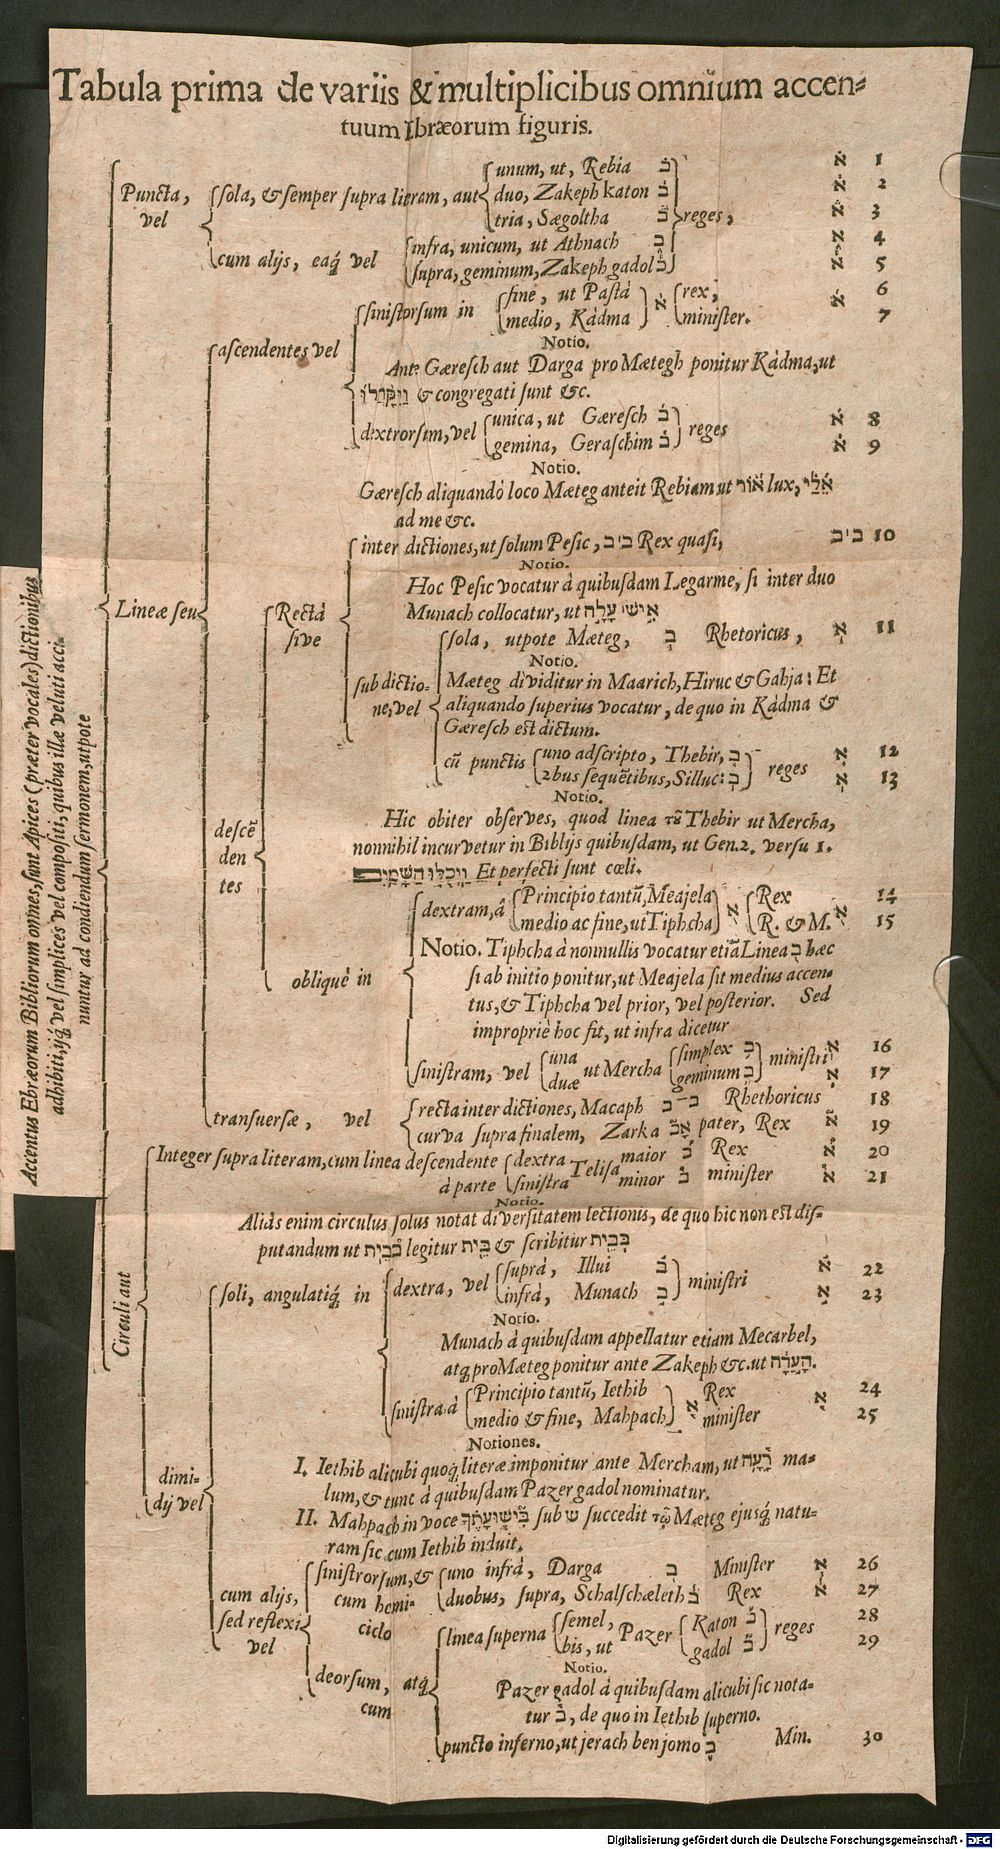 Tabula prima de variis & multiplicibus omnium accen-
tuum Ebræorum figuris.
Accentus Ebræorum Bibliorum omnes, sunt Apices (præter vocales) dictionibus
adhibiti, ijq́; vel simplices vel compositi, quibus illæ veluti acci-
nuntur ad condiendum sermonem, utpote
Puncta, vel
sola, & semper supra literam, aut
unum, ut, Rebia 1
duo, Zakeph katon 2
tria, Sægoltha reges, 3
cum alijs, eaq́; vel
infra, unicum, ut Athnach 4
supra, geminum, Zakeph gadol 5
Lineæ seu
ascendentes vel
sinistorsum in
fine, ut Pastà rex, 6
medio, Kàdma minister. 7
Notio.
Ante Gæresch aut Darga pro Mætegh ponitur Kàdma, ut
& congregati sunt &c.
dextrorsum, vel
unica, ut Gæresch 8
gemina, Geraschim reges 9
Notio.
Gæresch aliquandò loco Mæteg anteit Rebiam ut אור lux, אלי
ad me &c.
descen den tes
Rectà sive
inter dictiones, ut solum Pesic, ב׀ב Rex quasi, ב׀ב 10
Notio.
Hoc Pesic vocatur à quibusdam Legarme, si inter duo
Munach collocatur, ut
sub dictio-
ne, vel
sola, utpote Mæteg, Rhetoricus, 11
Notio.
Mæteg dividitur in Maarich, Hiruc & Gahja: Et
aliquando superius vocatur, de quo in Kàdma &
Gæresch est dictum.
cũ punctis
uno adscripto, Thebir, 12
2bus sequẽtibus, Silluc: reges 13
Notio.
Hic obiter observes, quod linea τȣ̃ Thebir ut Mercha,
nonnihil incurvetur in Biblijs quibusdam, ut Gen. 2. versu 1.
ויכלו השמים Et perfecti sunt cœli.
obliquè in
dextram, à
Principio tantũ, Meajela Rex 14
medio ac fine, ut Tiphcha R. & M. 15
Notio. Tiphcha à nonnullis vocatur etiã Linea ב hæc
si ab initio ponitur, ut Meajela sit medius accen-
tus, & Tiphcha vel prior, vel posterior. Sed
impropriè hoc fit, ut infra dicetur
sinistram, vel
una simplex 16
duæ ut Mercha geminum ministri 17
transuersæ, vel
recta inter dictiones, Macaph ב־ב Rhethoricus 18
curva supra finalem, Zarka אב pater, Rex 19
Circuli aut
Integer supra literam, cum linea descendente
à parte
dextra Telisa maior Rex 20
sinistra minor minister 21
Notio.
Aliàs enim circulus solus notat diversitatem lectionis, de quo hic non est dis-
putandum ut בבית legitur בית & scribitur בבית
dimi-
dij vel
soli, angulatiq́; in
dextra, vel
suprà, Illui 22
infrà, Munach ministri 23
Notio.
Munach à quibusdam appellatur etiam Mecarbel,
atq; pro Mæteg ponitur ante Zakeph &c. ut
sinistra à
Principio tantũ, Iethib Rex 24
medio & fine, Mahpach minister 25
Notiones.
I. Iethib alicubi quoq́; literæ imponitur ante Mercham, ut רעה ma-
lum, & tunc à quibusdam Pazer gadol nominatur.
II. Mahpach in voce בישועתך sub ש succedit τῷ Mæteg ejusq́; natu-
ram sic cum Iethib induit.
cum alijs,
sed reflexi
vel
sinistrorsum, &
cum hemi-
ciclo
uno infrà, Darga Minister 26
duobus, supra, Schalschæleth Rex 27
deorsum, atq́;
cum
linea superna
semel, Katon 28
bis, ut Pazer gadol reges 29
Notio.
Pazer gadol à quibusdam alicubi sic nota-
tur ב, de quo in Iethib superno.
puncto inferno, ut jerach ben jomo Min. 30
Digitalisierung gefördert durch die Deutsche Forschungsgemeinschaft - DFG